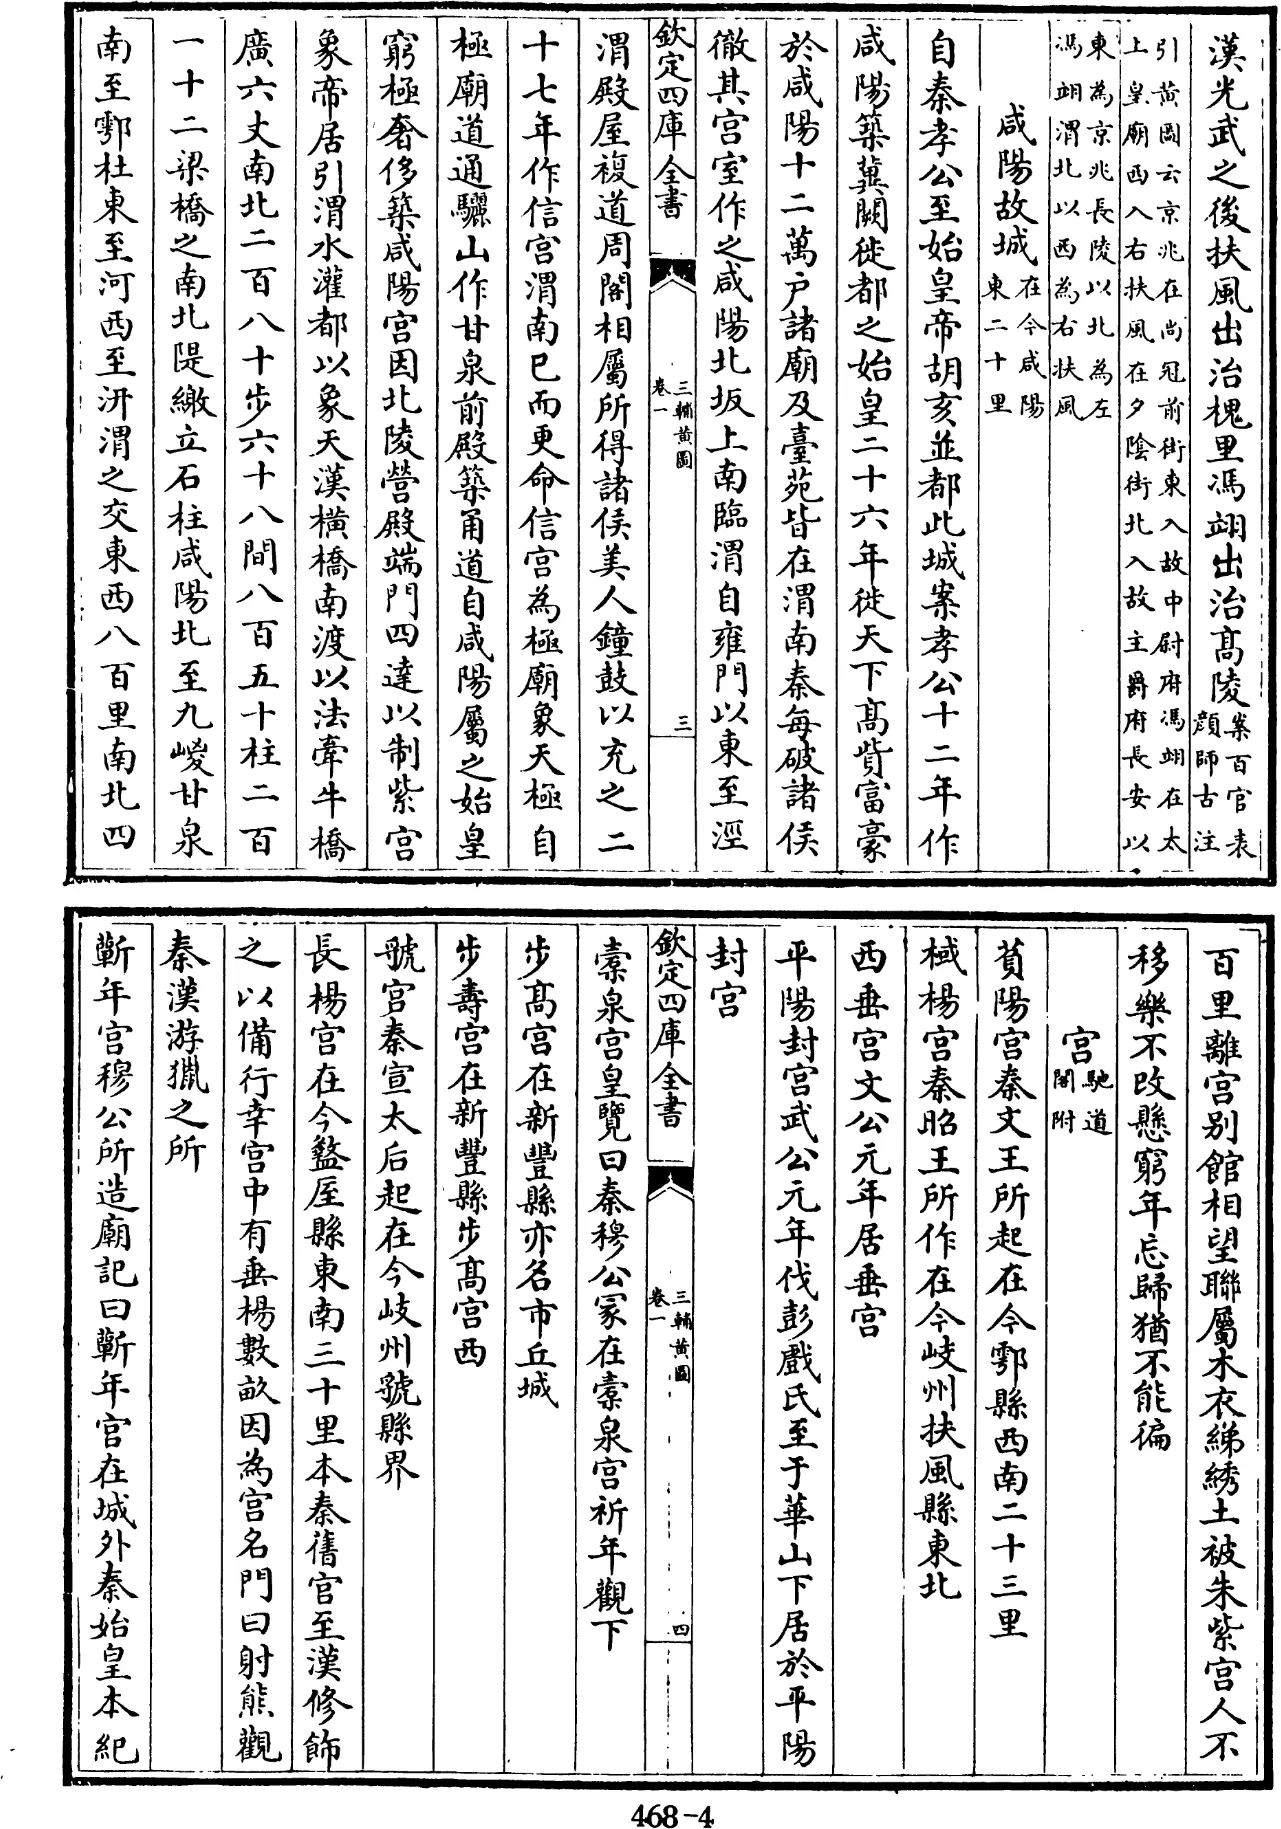 漢光武之後扶風出治槐里馮翊出治髙陵案百官表顔師古注
引黄圖云京兆在尚冠前街東入故中尉府馮翊在太
上皇廟西入右扶風在夕陰街北入故主爵府長安以
東為京兆長陵以北為左
馮翊渭北以西為右扶風
咸陽故城在今咸陽東二十里
自秦孝公至始皇帝胡亥並都此城案孝公十二年作
咸陽築冀闕徙都之始皇二十六年徙天下髙貲富豪
於咸陽十二萬户諸廟及臺苑皆在渭南秦每破諸侯
徹其宫室作之咸陽北坂上南臨渭自雍門以東至涇
欽定四庫全書
三輔黄圖
卷一
三
渭殿屋複道周閣相屬所得諸侯美人鐘鼓以充之二
十七年作信宫渭南已而更命信宫為極廟象天極自
極廟道通驪山作甘泉前殿築甬道自咸陽屬之始皇
窮極奢侈築咸陽宫因北陵營殿端門四達以制紫宫
象帝居引渭水灌都以象天漢橫橋南渡以法牽牛橋
廣六丈南北二百八十步六十八間八百五十柱二百
一十二梁橋之南北隄繳立石柱咸陽北至九嵕甘泉
南至鄠杜東至河西至汧渭之交東西八百里南北四
百里離宫别館相望聯屬木衣綈綉土被朱紫宫人不
移樂不改懸窮年忘歸猶不能徧
宫馳道閣附
萯陽宫秦文王所起在今鄠縣西南二十三里
棫楊宫秦昭王所作在今岐州扶風縣東北
西垂宫文公元年居垂宫
平陽封宫武公元年伐彭戲氏至于華山下居於平陽
封宫
欽定四庫全書
三輔黄圖
卷一
四
橐泉宫皇覽曰秦穆公冡在橐泉宫祈年觀下
步髙宫在新豐縣亦名市丘城
步壽宫在新豐縣步髙宫西
虢宫秦宣太后起在今岐州虢縣界
長楊宫在今盩厔縣東南三十里本秦舊宫至漢修飾
之以備行幸宫中有垂楊數畝因為宫名門曰射熊觀
秦漢游獵之所
蘄年宫穆公所造廟記曰蘄年宫在城外秦始皇本紀
468-4